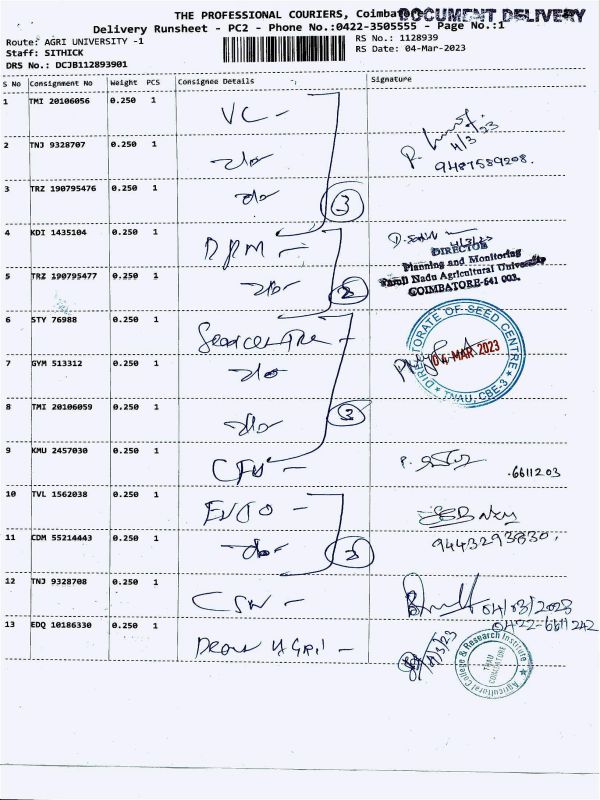 THE PROFESSIONAL COURIERS, Coimba
DOCUMENT DELIVERY
Delivery Runsheet - PC2 - Phone No.:0422-3505555 - Page No.:1
Route: AGRI UNIVERSITY -1
RS No.: 1128939
Staff: SITHICK
RS Date: 04-Mar-2023
DRS No.: DCJB112893901
S No Consignment No Weight PCS Consignee Details Signature
1 TMI 20106056 0.250 1 VC -
4/3/23
2 TNJ 9328707 0.250 1 do
9487589208.
3 TRZ 190795476 0.250 1 do
3
4 KDI 1435104 0.250 1 DPM -
4/3/23
DIRECTOR
Planning and Monitoring
Tamil Nadu Agricultural University
COIMBATORE-641 003.
5 TRZ 190795477 0.250 1 do 2
6 STY 76988 0.250 1 Seed centre -
DIRECTORATE OF SEED CENTRE
04 MAR 2023
* TNAU, CBE-3 *
7 GYM 513312 0.250 1 do
8 TMI 20106059 0.250 1 do 3
9 KMU 2457030 0.250 1
6611203
10 TVL 1562038 0.250 1
11 CDM 55214443 0.250 1 do 2
9443293830.
12 TNJ 9328708 0.250 1 CSW -
04/03/2023
0422-6611242
13 EDQ 10186330 0.250 1 Dean Agri -
4/3/23
Agricultural College & Research Institute
TNAU
COIMBATORE